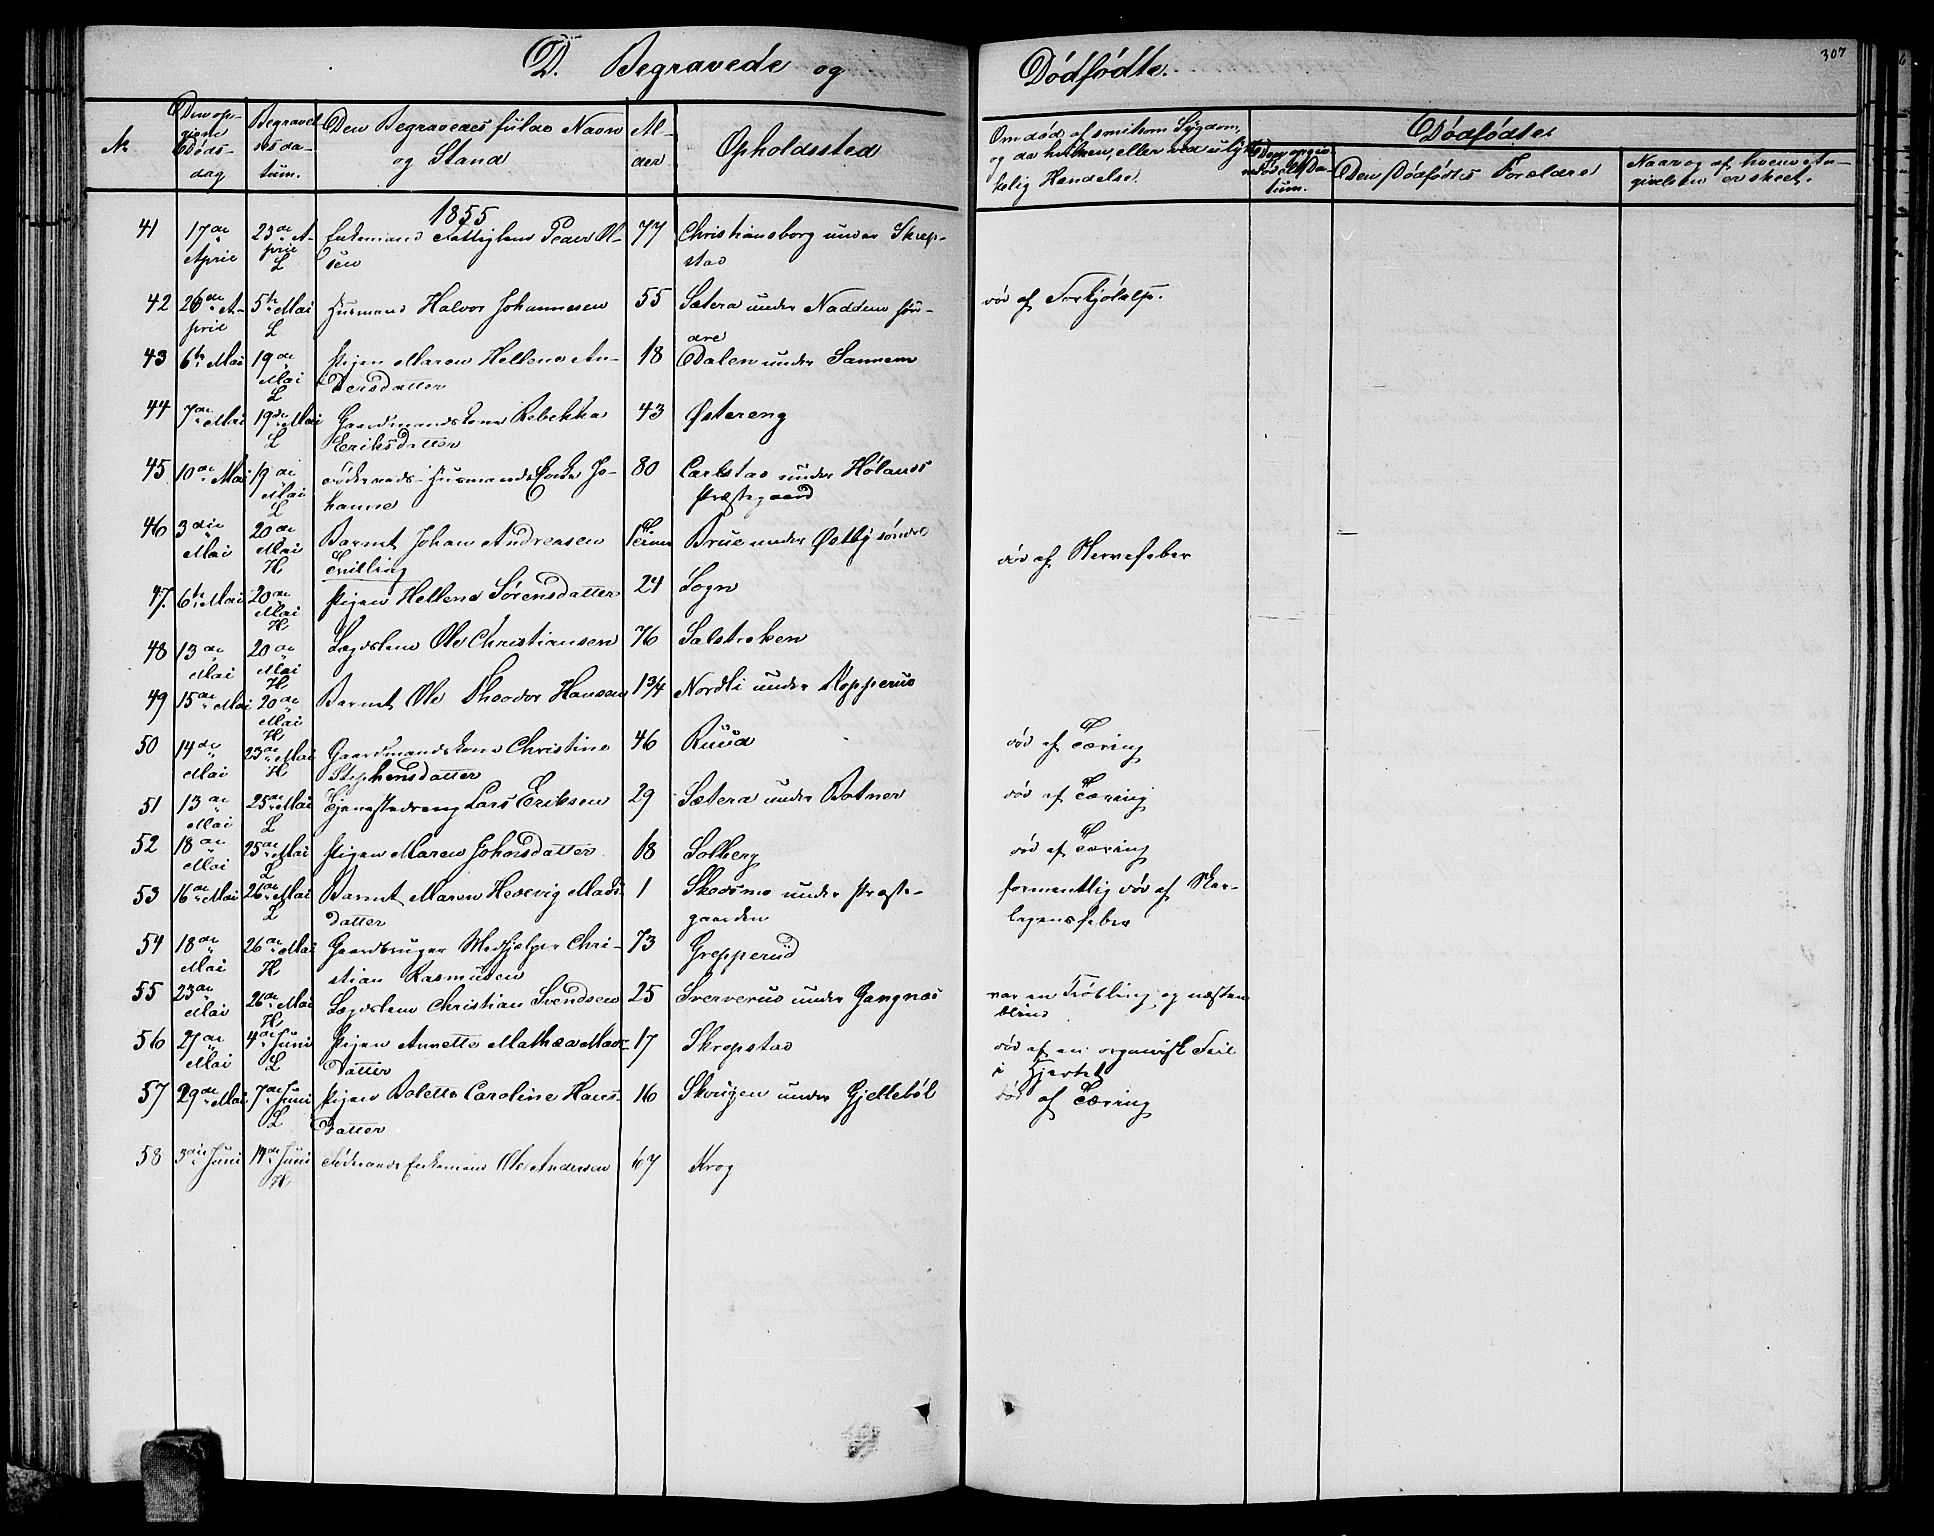 D. Begravede og Dødfødte.
307
No
Den op-
givne
Døds-
dag
Begravel
sesda-
tum.
Den Begravedes fulde Navn
og Stand
Al-
der
Opholdssted
Om død af smitsom Sygdom,
og da hvilken, eller ved ulyk-
kelig Hendelse.
Dødfødte
Den Dødfødtes Forældre
Naar og af hvem An-
givelsen er skeet.
1855
41 17de April 23de April L Enkemand Fattiglem Peder Ol-
sen 77 Christiansborg under Skrep-
stad
42 26de April 5te Mai L Husmand Halvor Johannesen 55 Sætera under Naddum søn-
dre død af Forkjølelse.
43 6te Mai 19de Mai L Pigen Maren Hellene An-
dersdatter 18 Dalen under Sannem
44 7de Mai 19de Mai L Gaardmandskone Rebekka
Eriksdatter 43 Østereng
45 10de Mai 19de Mai L Føderaads-Husmands Enke Jo-
hanne 80 Carlstad under Hølands
Præstegaard
46 3die Mai 20de Mai H Barnet Johan Andreasen
Tvilling Brue under Østby søndre
47. 6te Mai 20de Mai H Pigen Hellene Sørensdatter 24 Sogn død af Nervefeber
48 13de Mai 20de Mai H Lægdslem Ole Christiansen 76 Salstroken
49 15de Mai 20de Mai H Barnet Ole Theodor Hansen 1 3/4 Nordli under Kopperud
50 14de Mai 23de Mai H Gaardmandskone Christine
Stephensdatter 46 Ruud død af Tæring
51 13de Mai 25de Mai L Tjenestedreng Lars Eriksen 29 Sætera under Botner død af Tæring
52 18de Mai 25de Mai L Pigen Maren Johansdatter 18 Solberg død af Tæring
53 16de Mai 26de Mai L Barnet Maren Hedevig Mads-
datter 1 Skodsmo under Præste-
gaarden formentlig død af Skar-
lagensfeber
54 18de Mai 26de Mai H Gaardbruger Medhjelper Chri-
stian Rasmusen 73 Grepperud
55 23de Mai 26de Mai H Lægdslem Christian Svendsen 25 Sververud under Gangnæs var en Tøbling og næsten
blind
56 27de Mai 4de Juni L Pigen Annette Mathea Mads-
datter 17 Skrepstad død af en organisk Feil
i Hjertet
57 29de Mai 7de Juni L Pigen Bolette Caroline Hans-
datter 16 Skougen under Gjellebøl død af Tæring
58 3die Juni 17de Juni H Føderaads Enkemand Ole Andersen 67 Krog